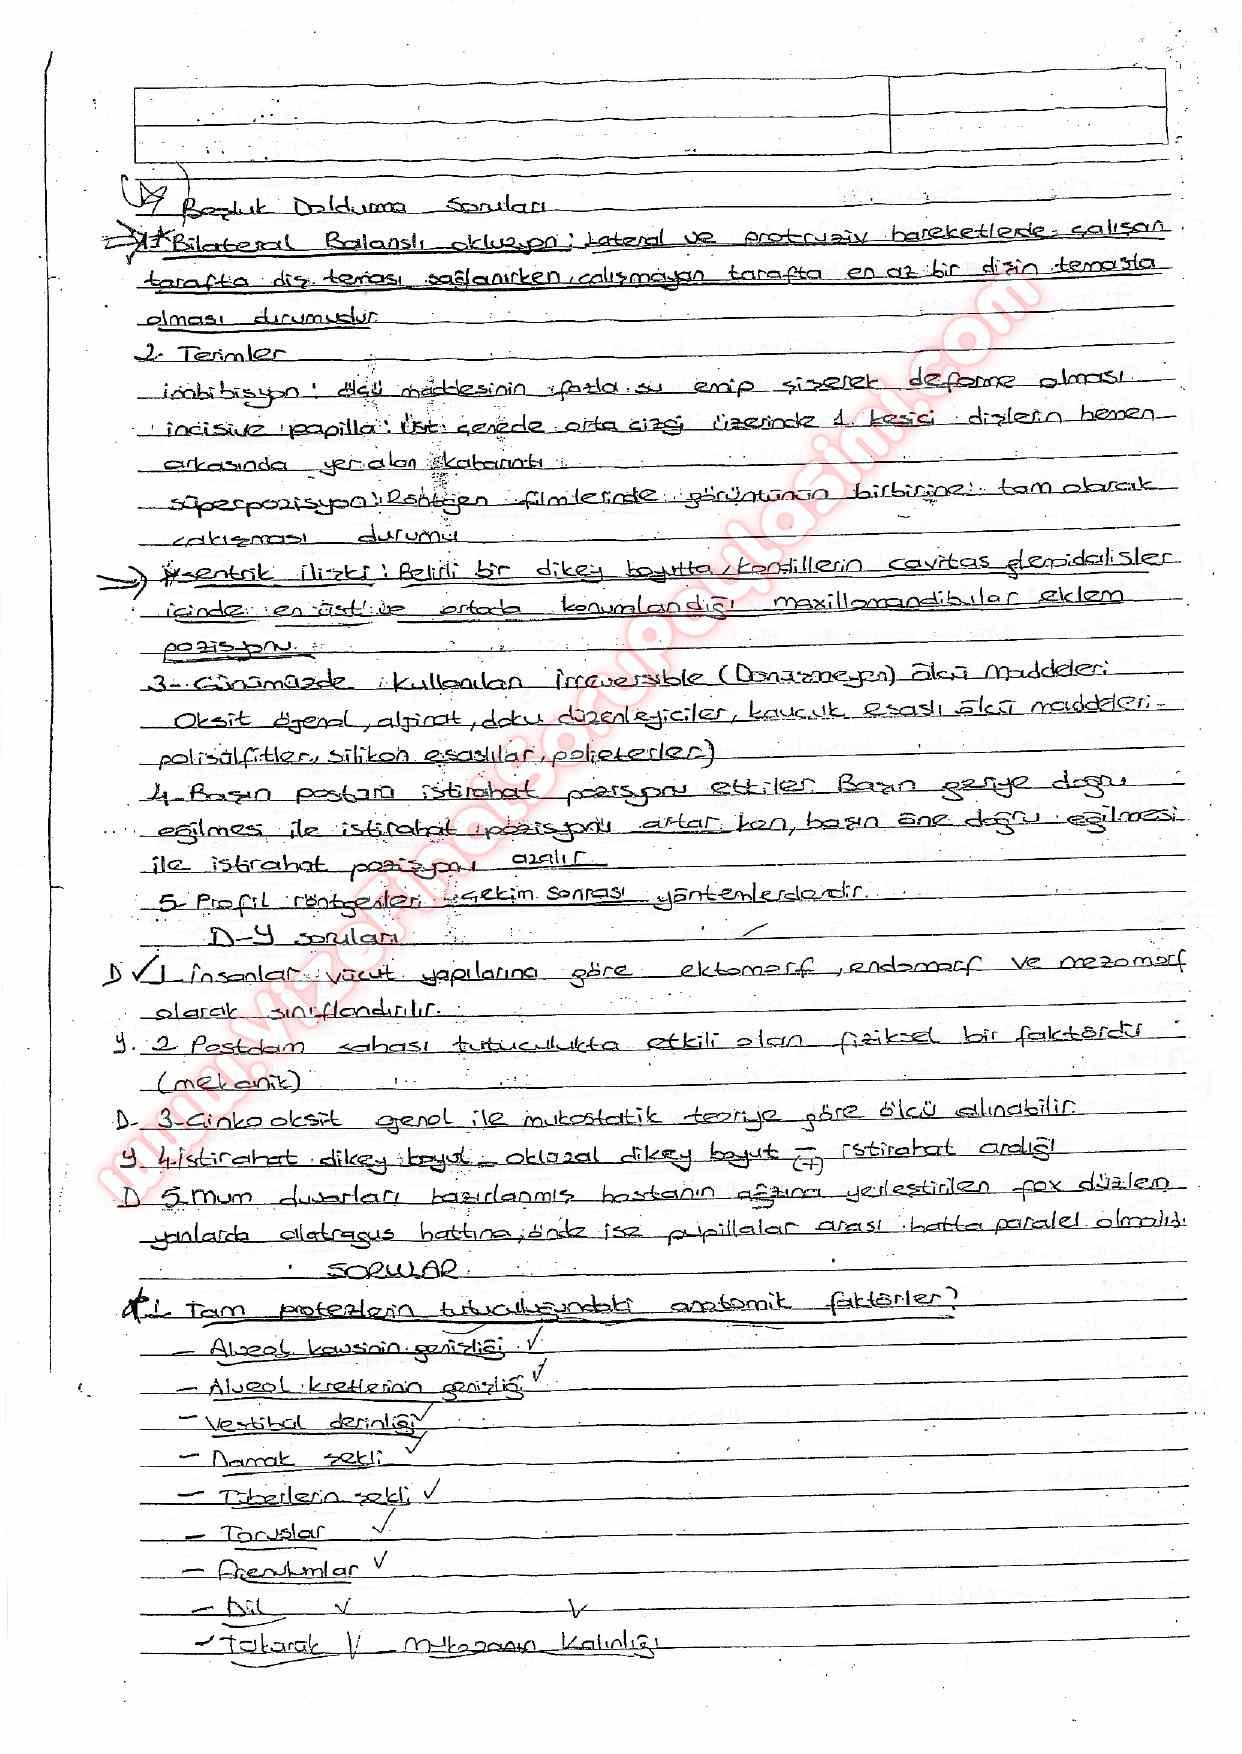 Boşluk Doldurma Soruları
1* Bilateral Balanslı okluzyon: Lateral ve protruziv hareketlerde çalışan
tarafta diş teması sağlanırken, çalışmayan tarafta en az bir dişin temasta
olması durumudur
2- Terimler
imbibisyon: ölçü maddesinin fazla su emip şişerek deforme olması
incisive papilla: Üst çenede orta çizgi üzerinde 1. kesici dişlerin hemen
arkasında yer alan kabarıntı
süperpozisyon: Röntgen filmlerinde görüntünün birbirine tam olarak
çakışması durumu
* sentrik ilişki: Belirli bir dikey boyutta, kondillerin cavitas glenoidalisler
içinde en üst ve ortada konumlandığı maxillomandibular eklem
pozisyonu
3- Günümüzde kullanılan irreversible (Dönüşmeyen) ölçü maddeleri
Oksit öjenol, alginat, doku düzenleyiciler, kauçuk esaslı ölçü maddeleri-
polisülfitler, silikon esaslılar, polieterler)
4- Başın postürü istirahat pozisyonu etkiler. Başın geriye doğru
eğilmesi ile istirahat pozisyonu artarken, başın öne doğru eğilmesi
ile istirahat pozisyonu azalır
5- Profil röntgenleri çekim sonrası yöntemlerdendir.
D-Y soruları
D ✓ 1 İnsanlar vücut yapılarına göre ektomorf, endomorf ve mezomorf
olarak sınıflandırılır.
Y. 2 Postdam sahası tutuculukta etkili olan fiziksel bir faktördü
(mekanik)
D- 3- Çinko oksit genol ile mukostatik teoriye göre ölçü alınabilir.
Y. 4. istirahat dikey boyut - oklüzal dikey boyut = (+) istirahat aralığı
D 5. Mum duvarları hazırlanmış hastanın ağzına yerleştirilen fox düzlem
yanlarda alatragus hattına, önde ise pupillalar arası hatta paralel olmalıdı
SORULAR
* 1. Tam protezlerin tutuculuğundaki anatomik faktörler?
- Alveol kavsinin genişliği ✓
- Alveol kretlerinin genişliği ✓
- Vestibal derinliği ✓
- Damak şekli ✓
- Tüberlerin şekli ✓
- Toruslar ✓
- Frenulumlar ✓
- Dil ✓ ✓
- Tükürük ✓ - mukozanın kalınlığı
www.vizefinalsorupaylasimi.com